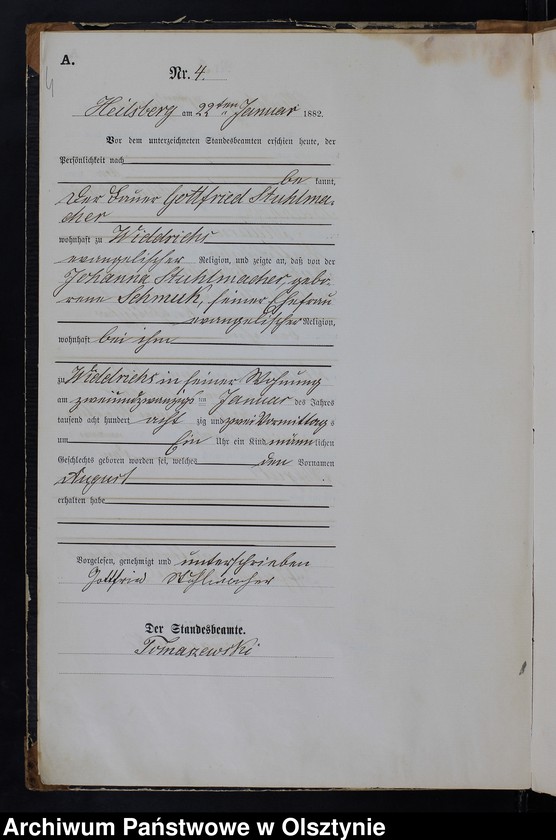 A.
4
Nr. 4.
Heilsberg am 22ten Januar 1882.
Vor dem unterzeichneten Standesbeamten erschien heute, der
Persönlichkeit nach
be kannt,
der Bauer Gottfried Stuhlma-
cher
wohnhaft zu Widdrichs
evangelischer Religion, und zeigte an, daß von der
Johanna Stuhlmacher, gebo-
rene Schmuk, seiner Ehefrau
evangelischer Religion,
wohnhaft bei ihm
zu Widdrichs in seiner Wohnung
am zweiundzwanzigsten Januar des Jahres
tausend acht hundert acht zig und zwei Vormittags
um Ein Uhr ein Kind männ lichen
Geschlechts geboren worden sei, welches den Vornamen
August
erhalten habe
Vorgelesen, genehmigt und unterschrieben
Gottfried Stuhlmacher
Der Standesbeamte.
Tomaszewski
Archiwum Państwowe w Olsztynie